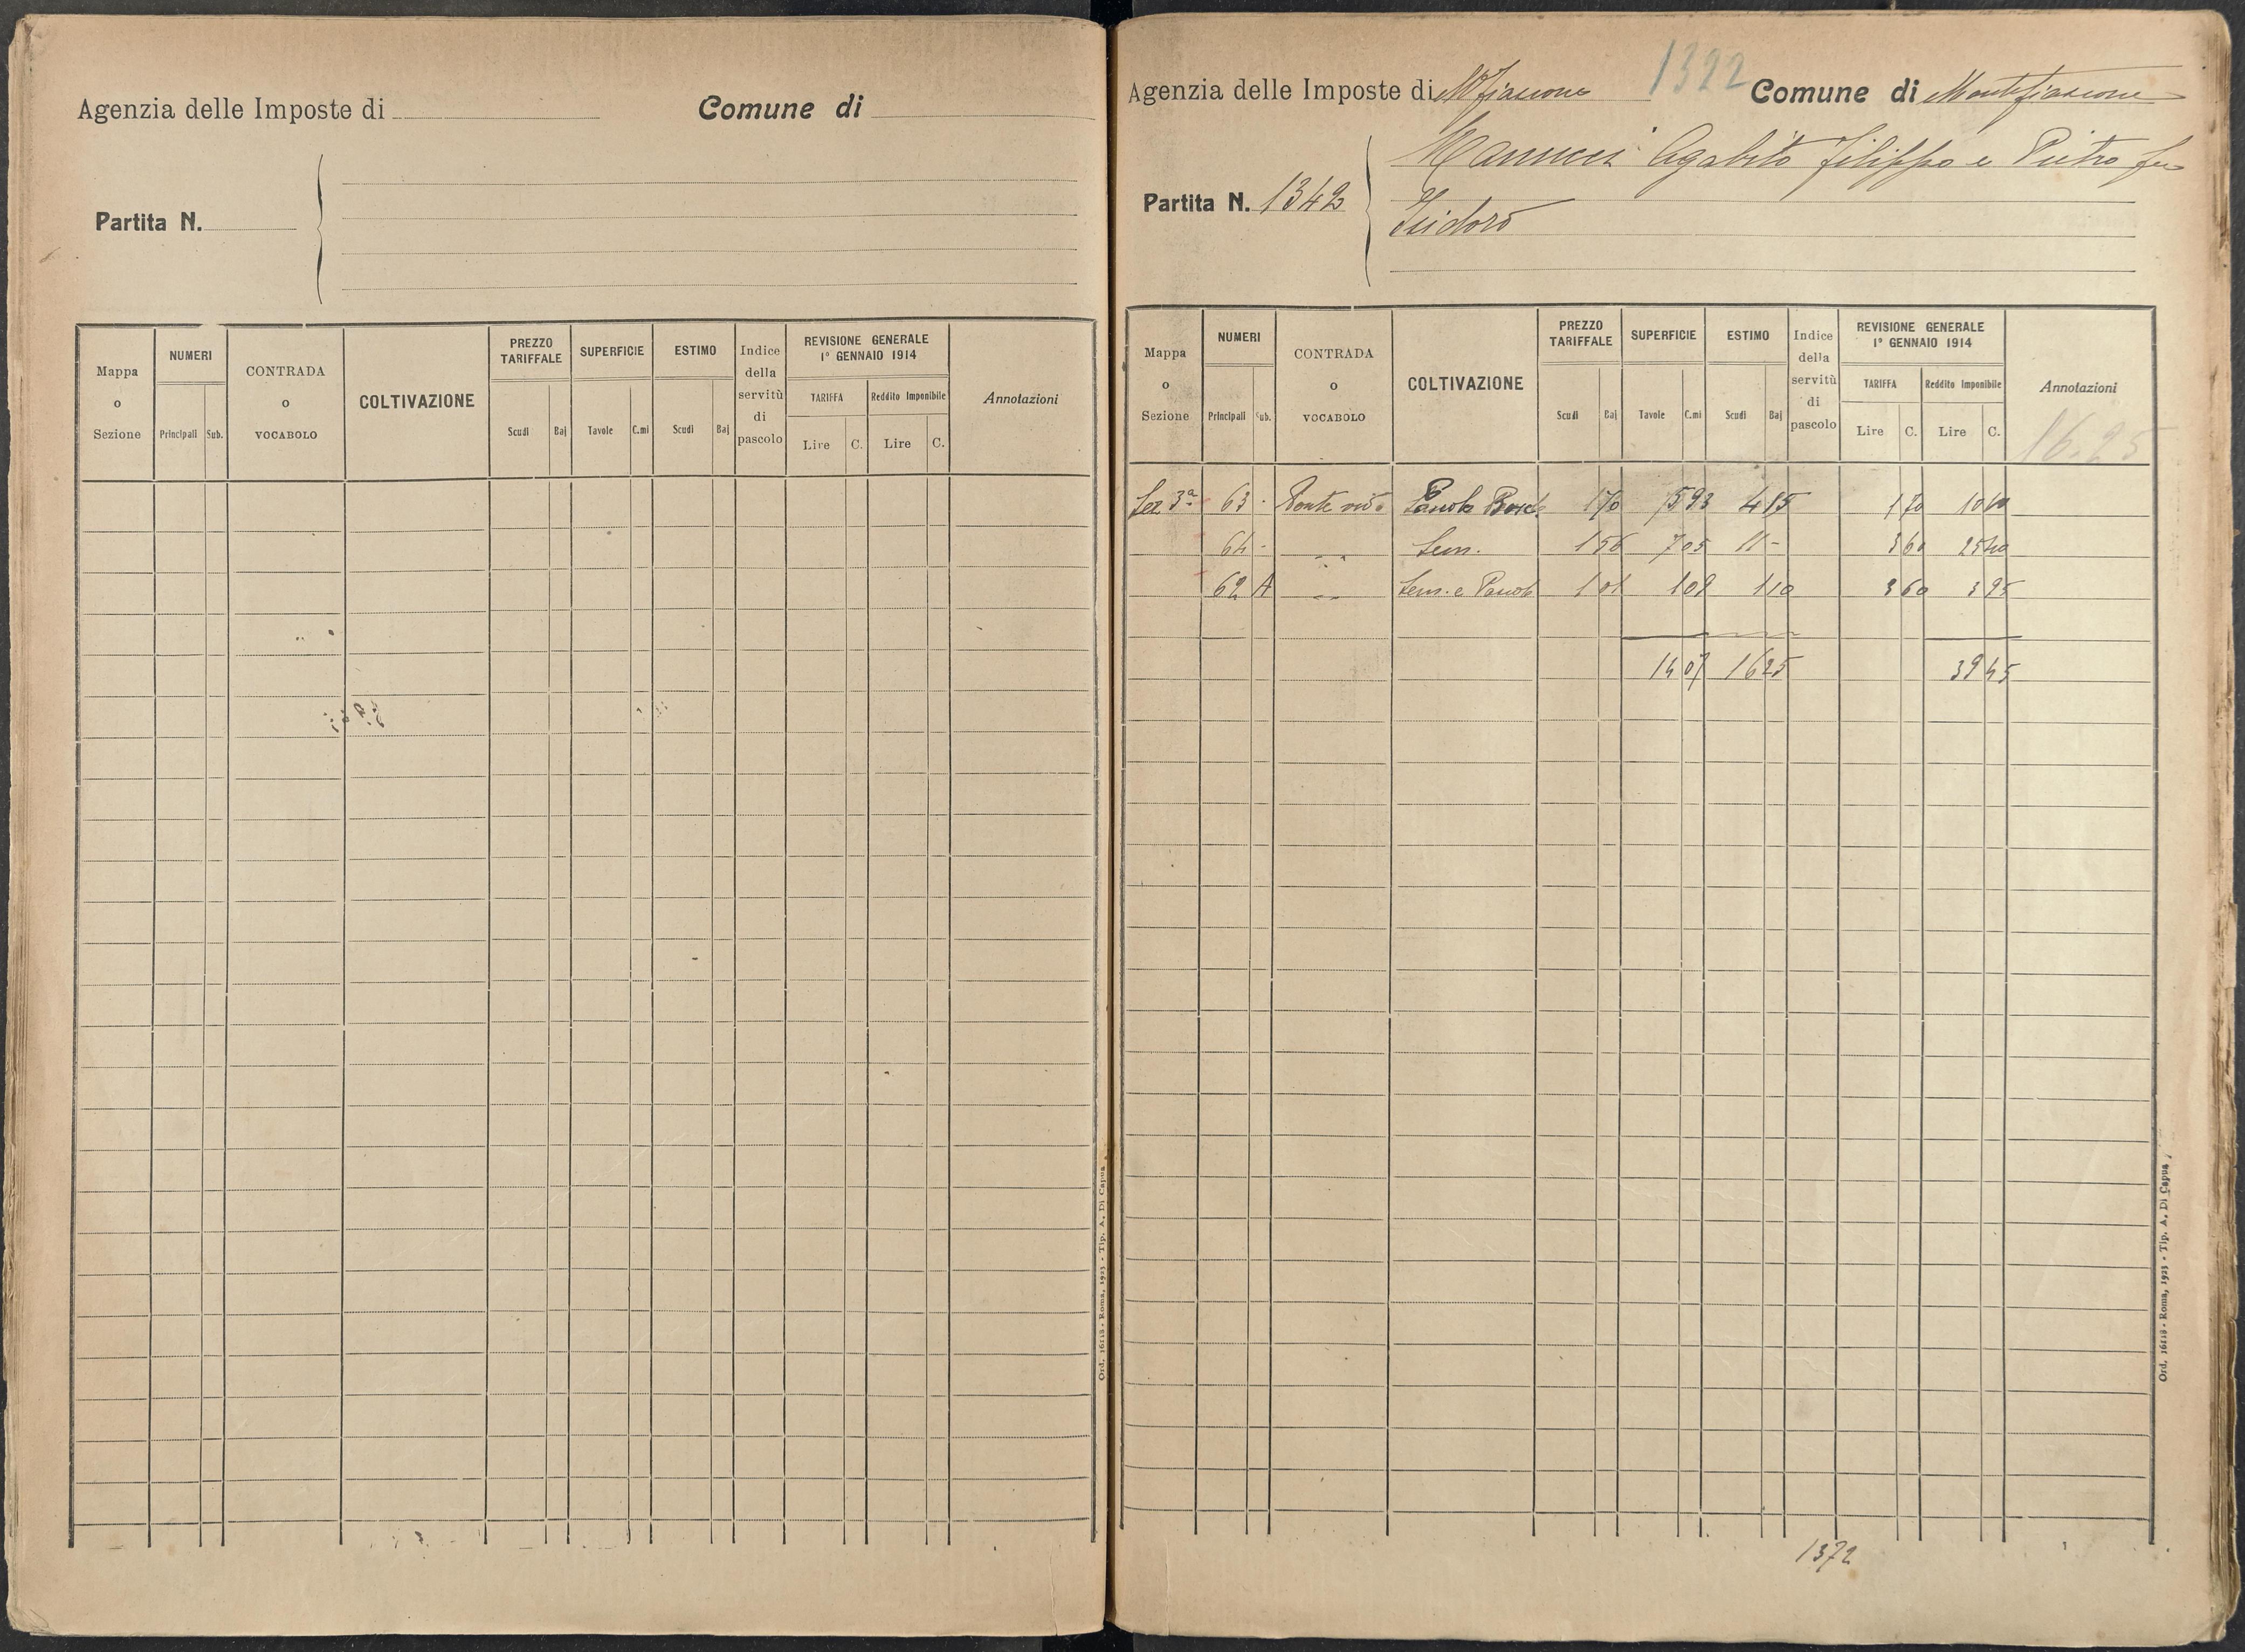 Agenzia delle Imposte di
Comune di
Partita N.
Mappa o Sezione
NUMERI
Principali
Sub.
CONTRADA o VOCABOLO
COLTIVAZIONE
PREZZO TARIFFALE
Scudi
Baj
SUPERFICIE
Tavole
C.mi
ESTIMO
Scudi
Baj
Indice della servitù di pascolo
REVISIONE GENERALE
1° GENNAIO 1914
TARIFFA
Lire
C.
Reddito Imponibile
Lire
C.
Annotazioni
Ord. 16118 - Roma, 1923 - Tip. A. Di Capua
1322
Agenzia delle Imposte di Mfiascone
Comune di Montefiascone
Partita N. 1342
Manucci Agabito Filippo e Pietro fu
Isidoro
Mappa o Sezione
NUMERI
Principali
Sub.
CONTRADA o VOCABOLO
COLTIVAZIONE
PREZZO TARIFFALE
Scudi
Baj
SUPERFICIE
Tavole
C.mi
ESTIMO
Scudi
Baj
Indice della servitù di pascolo
REVISIONE GENERALE
1° GENNAIO 1914
TARIFFA
Lire
C.
Reddito Imponibile
Lire
C.
Annotazioni
16.25
Sez 3ª 63 - 1 70 5 93 4 15 1 70 10 10
64 - Sem. 1 56 7 05 11 - 3 60 25 40
62 A Sem. e Pascolo 1 01 1 09 1 10 3 60 3 95
14 07 16 25 39 45
Ord. 16118 - Roma, 1923 - Tip. A. Di Capua
1372